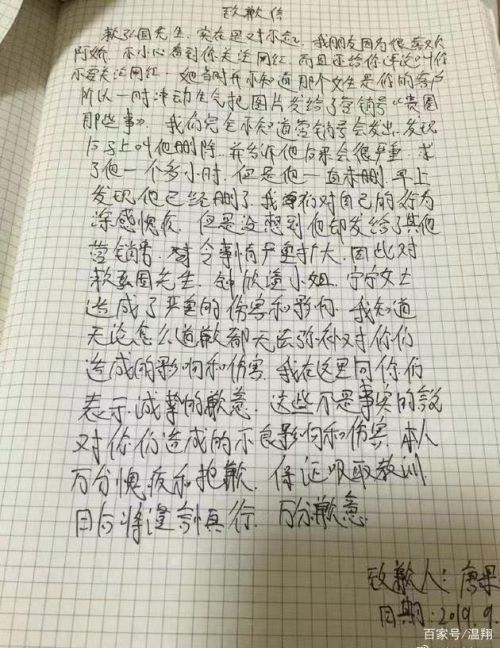 致歉信
赖弘国先生，实在是对不起，我朋友因为很喜欢
阿娇，不小心看到你关注网红，而且还给你评论叫你
不要关注网红，她当时并不知道那个女生是你的客户
所以一时冲动生气把图片发给了营销号《贵圈
那些事》，我们完全不知道营销号会发出，发现
后马上叫他删除，并告诉他后果会很严重，求
了他一个多小时，但是他一直未删，早上
发现他已经删了，我们对自己的行为
深感愧疚，但是没想到他却发给了其他
营销号，令事情严重扩大，因此对
赖弘国先生，钟欣潼小姐，宁宁女士
造成了严重的伤害和影响，我知道
无论怎么道歉都无法弥补对你们
造成的影响和伤害，我在这里向你们
表示诚挚的歉意，这些不是事实的说
对你们造成的不良影响和伤害，本人
万分愧疚和抱歉，保证吸取教训
日后将谨言慎行，万分歉意
致歉人：唐果
日期：2019.9.
百家号/温翔